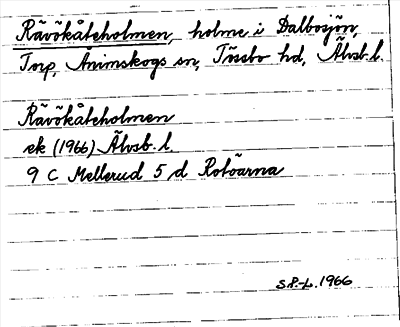 Rävökåteholmen, holme i Dalbosjön,
Torp, Ånimskogs sn, Tössbo hd, Älvsb. l.
Rävökåteholmen
ek (1966) Älvsb. l.
9 C Mellerud 5 d Rotöarna
S.P-L. 1966